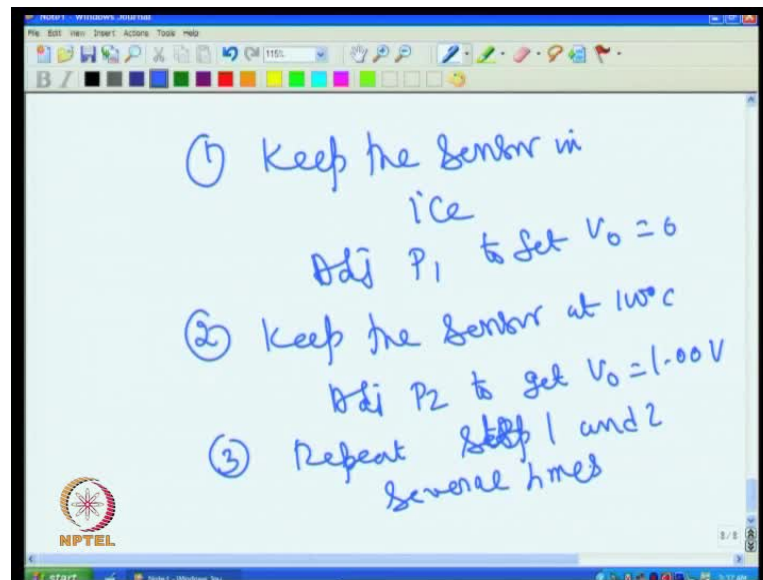 Note1 - Windows Journal
File Edit View Insert Actions Tools Help
115%
B I
① Keep the Sensor in
ice
Adj P1 to get V0 = 0
② Keep the Sensor at 100°C
Adj P2 to get V0 = 1.00V
③ Repeat Step 1 and 2
Several times
NPTEL
8/8
start
Note1 - Windows Jou...
3:37 AM